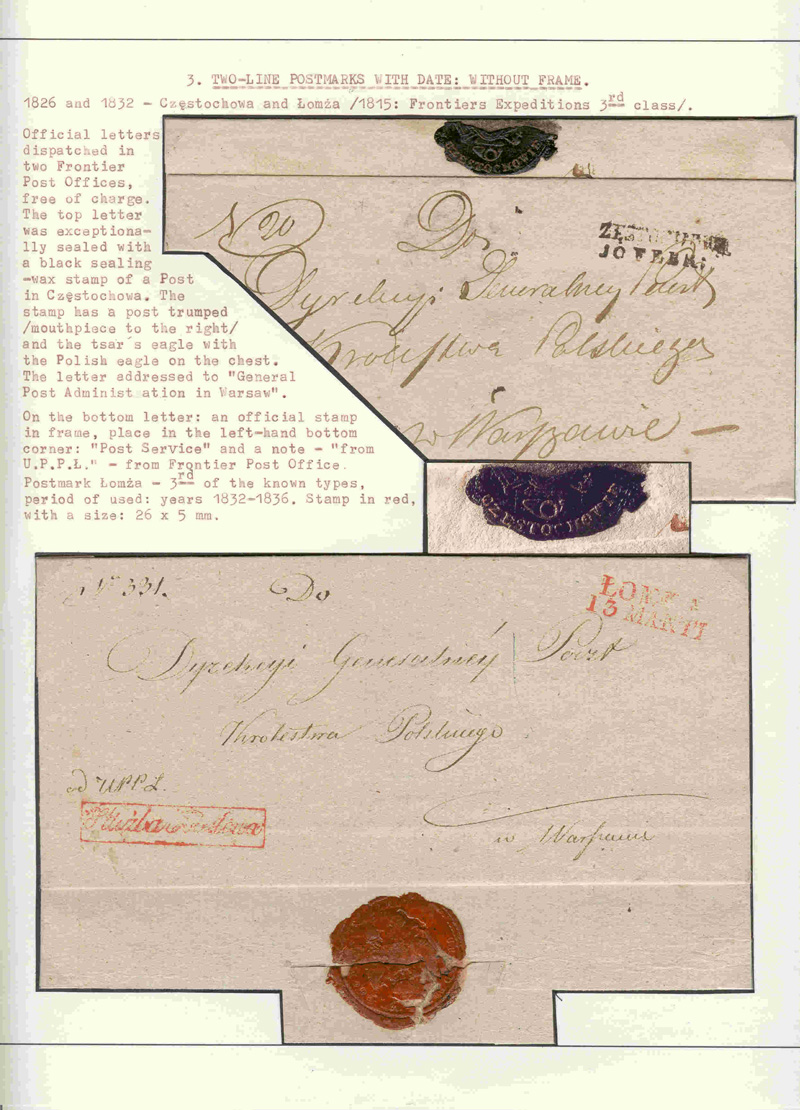 3. TWO-LINE POSTMARKS WITH DATE: WITHOUT FRAME.
1826 and 1832 - Częstochowa and Łomża /1815: Frontiers Expeditions 3rd class/.
Official letters
dispatched in
two Frontier
Post Offices,
free of charge.
The top letter
was exceptiona-
lly sealed with
a black sealing
-wax stamp of a Post
in Częstochowa. The
stamp has a post trumped
/mouthpiece to the right/
and the tsar´s eagle with
the Polish eagle on the chest.
The letter addressed to "General
Post Administ ation in Warsaw".
On the bottom letter: an official stamp
in frame, place in the left-hand bottom
corner: "Post Service" and a note - "from
U.P.P.Ł." - from Frontier Post Office.
Postmark Łomża - 3rd of the known types,
period of used: years 1832-1836. Stamp in red,
with a size: 26 x 5 mm.
CZĘSTOCHOWIE
N 20
Do
JO FEBR:
Dyrekcyi Generalney Poczt
Krolestwa Polskiego
w Warszawie
CZĘSTOCHOWIE
Nr 331.
Do
ŁOMŻA
13 MARTI
Dyrekcyi Generalnéy Poczt
Krolestwa Polskiego
od UPPŁ.
Służba
w Warszawie